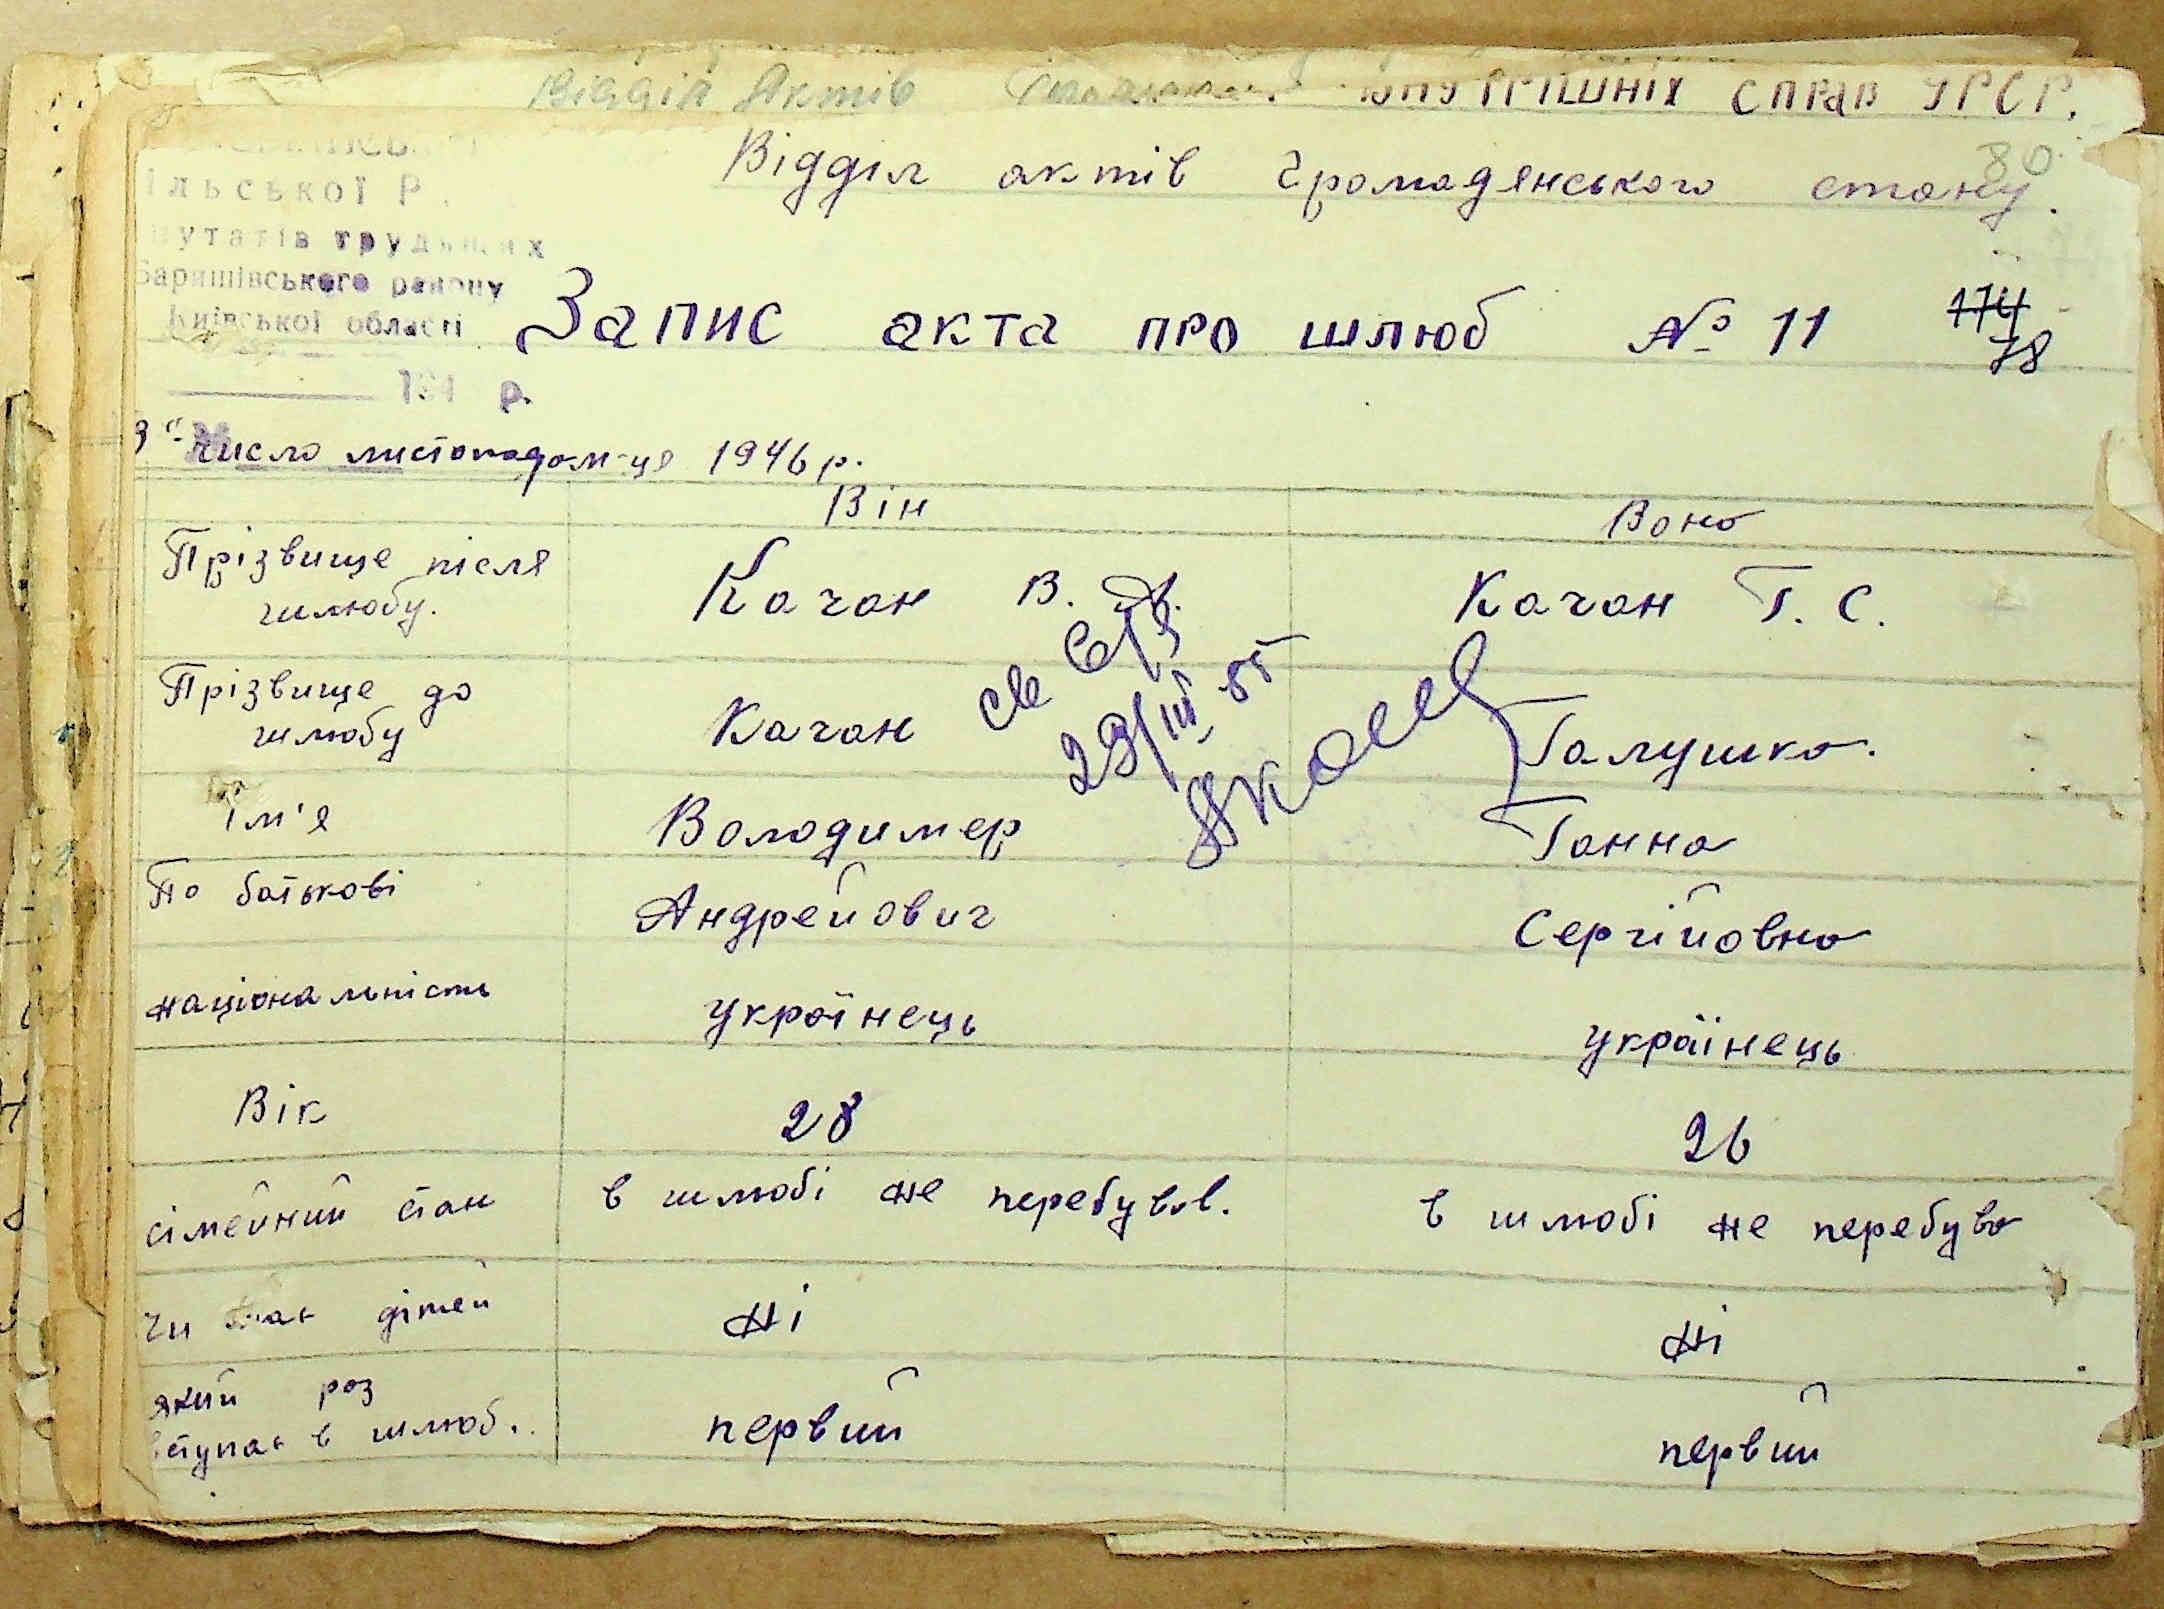 Відділ Актів внутрішніх справ УРСР.
Відділ актів громадянського стану.
80
ільської Р.
путатів трудящих
Баришівського району
Київської області
194 р.
Запис акта про шлюб № 11
174
78
число листопада м-ця 1946 р.
Він Вона
Прізвище після шлюбу. Качан В. А. Качан Г. С.
св
29/III 55
Прізвище до шлюбу Качан Галушка.
ім'я Володимер Ганна
По батькові Андрейович Сергійовна
національність українець українець
Вік 28 26
сімейний стан в шлюбі не перебував. в шлюбі не перебува
чи має дітей ні ні
який раз вступає в шлюб. первий первий